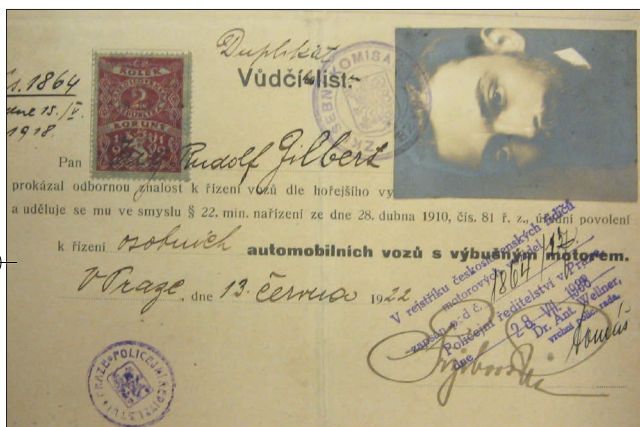 Duplikát
Vůdčí list.
čs. 1864
dne 15./V.
1918.
KOLEK
2
KORUNY
Pan Rudolf Gilbert
prokázal odbornou znalost k řízení vozů dle hořejšího vy
a uděluje se mu ve smyslu § 22. min. nařízení ze dne 28. dubna 1910, čís. 81 ř. z., úřední povolení
k řízení osobních automobilních vozů s výbušným motorem.
V Praze, dne 13. června 1922
V rejstříku československých řidičů
motorových
zapsán pod č. 1864/17.
Policejní ředitelství v Praze
dne 28. VII. 1938
Dr. Ant. Wellner,
vrchní polic. rada.